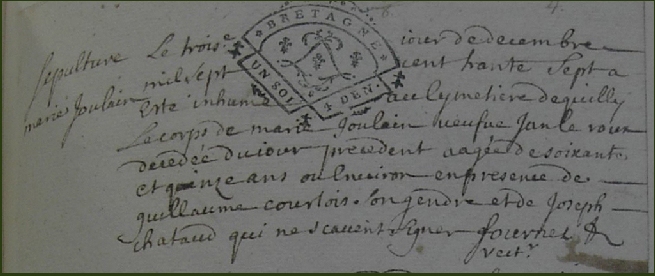 Sepulture
marie Joulain
Le trois.e jour de decembre
mil sept cent trante sept a
Esté inhumé au cymetiere de quilly
Le corps de marie Joulain veufve Jan le roux
decedée du jour precedent aagée de soixante
et quinze ans ou Environ en presence de
guillaume courtois son gendre et de Joseph
chataud qui ne scavent signer fournet
rect.r
BRETAGNE
UN SOL
DEN.